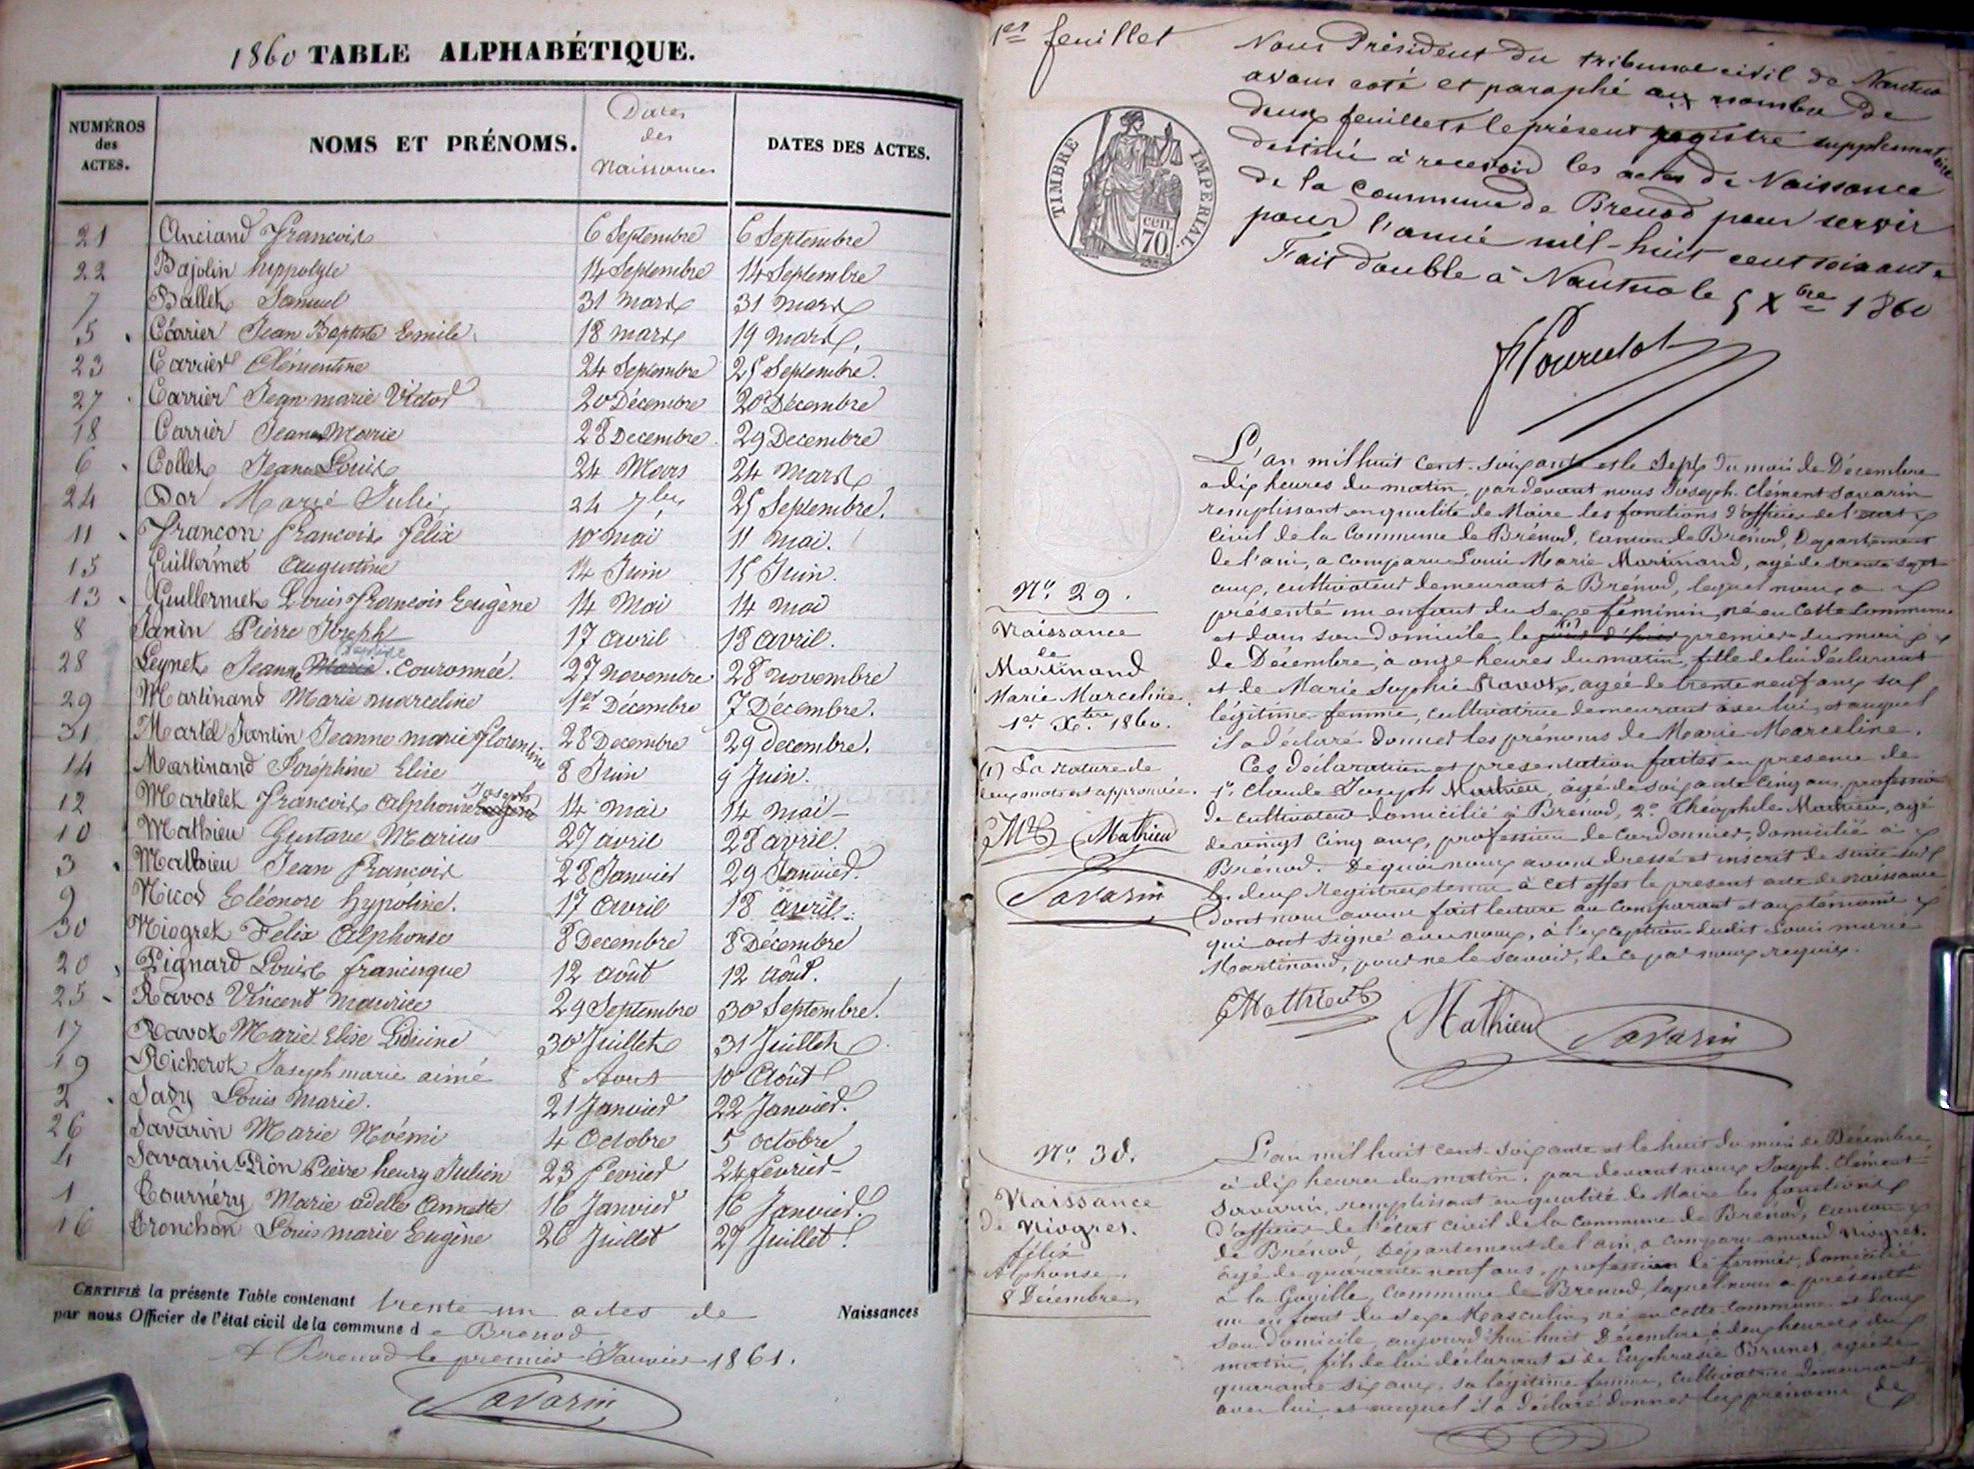 1860 TABLE ALPHABÉTIQUE.
NUMÉROS des ACTES.
NOMS ET PRÉNOMS.
Dates des Naissances
DATES DES ACTES.
21 Anciand François 6 Septembre 6 Septembre
22 Bajolin hippolyte 14 Septembre 14 Septembre
7 Ballet Samuel 31 mars 31 mars
5 Carrier Jean Baptiste Emile 18 mars 19 mars
23 Carrier Clémentine 24 Septembre 25 Septembre.
27 Carrier Jean marie Victor 20 Décembre 20 Décembre
18 Carrier Jeanne Marie 28 Decembre 29 Decembre
6 Collet Jean Louis 24 Mars 24 mars
24 Dor Marie Julie 24 7bre 25 Septembre.
11 Françon François Félix 10 mai 11 mai.
15 Guillermet Augustine 14 Juin 15 Juin.
13 Guillermet Louis François Eugène 14 Mai 14 mai
8 Janin Pierre Joseph 17 avril 18 avril.
28 Leynet Jeanne Marie Couronnée. 27 novembre 28 novembre
29 Martinand Marie marceline 1er Décembre 7 Décembre.
31 Martel Jantin Jeanne marie florentine 28 Decembre 29 decembre.
14 Martinand Joséphine Elise 8 Juin 9 Juin.
12 Martelet François alphonse Joseph 14 mai 14 mai
10 Mathieu Gustave Marius 27 avril 28 avril.
3 Mathieu Jean François 28 Janvier 29 Janvier.
9 Nicod Eléonore hypoline. 17 avril 18 avril.
30 Niogret Felix Alphonse 8 Decembre 8 Décembre
20 Pignard Louise francisque 12 août 12 Août.
25 Ravos Vincent maurice 29 Septembre 30 Septembre.
17 Ravot Marie Elise 30 Juillet 31 Juillet
19 Richerot Joseph marie aimé 8 Aout 10 Août
2 Savy Louis marie. 21 Janvier 22 Janvier.
26 Savarin Marie Noémi 4 Octobre 5 octobre
4 Savarin Rion Pierre henry Julien 23 fevrier 24 fevrier
1 Tournéry Marie adelle Annette 16 Janvier 16 Janvier.
16 Tronchon Louis marie Eugène 26 Juillet 27 Juillet.
CERTIFIÉ la présente Table contenant trente un actes de Naissances
par nous Officier de l'état civil de la commune de Brenod
A Brenod le premier Janvier 1861.
Savarin
1er feuillet
Nous Président du tribunal civil de Nantua
avons coté et paraphé au nombre de
deux feuillets le présent registre supplémentaire
destiné à recevoir les actes de Naissance
de la commune de Brenod pour servir
pour l'année mil-huit cent soixante
Fait double à Nantua le 5 Xbre 1860
TIMBRE IMPÉRIAL.
CEN. 70
L'an mil huit cent soixante et le Sept du mois de Décembre
a dix heures du matin, par devant nous Joseph Clément Savarin
remplissant en qualité de Maire les fonctions d'officier de l'état
civil de la Commune de Brénod, canton de Brénod, Département
de l'ain, a comparu Louis Marie Martinand, agé de trente sept
ans, cultivateur demeurant à Brénod, lequel nous a
présenté un enfant du Sexe féminin, né en Cette Commune
et dans son domicile, le (1) jour d'hier premier du mois
de Décembre, à onze heures du matin, fille de lui déclarant
et de Marie Sophie Ravot, agée de trente neuf ans sa
légitime femme, cultivatrice demeurant avec lui, et auquel
il a déclaré donner les prénoms de Marie Marceline.
Ces déclaration et présentation faites en presence de
1° Claude Joseph Mathieu, âgé de soixante Cinq ans, profession
de cultivateur domicilié à Brénod, 2° Théophile Mathieu, agé
de vingt Cinq ans, profession de cordonnier, domicilié à
Brénod. De quoi nous avons dressé et inscrit de suite sur
les deux registres tenus à cet effet le present acte de naissance
dont nous avons fait lecture au comparant et aux témoins
qui ont signé avec nous, à l'exception dudit Louis marie
Martinand, pour ne le savoir, de ce par nous requis.
Mathieu Mathieu Savarin
N° 29.
Naissance
de
Martinand
Marie Marceline.
1er Xbre 1860.
(1) La rature de
deux mots est approuvée.
Mathieu
Savarin
N° 30.
Naissance
De Niogret.
félix
Alphonse.
8 Décembre
L'an mil huit cent soixante et le huit du mois de Décembre,
à dix heures du matin, par devant nous Joseph Clément
Savarin, remplissant en qualité de Maire les fonctions
d'officier de l'état civil de la Commune de Brénod, canton
de Brénod, Département de l'ain, a comparu amand Niogret
âgé de quarante neuf ans, profession de fermier, domicilié
à la Gouille, commune de Brenod, lequel nous a présenté
un enfant du sexe Masculin, né en cette commune et dans
son domicile, aujourd'hui huit Décembre à deux heures du
matin, fils de lui déclarant et de Euphrasie Brunet, agée de
quarante six ans, sa légitime femme, cultivatrice demeurant
avec lui, et auquel il a déclaré donner les prénoms de